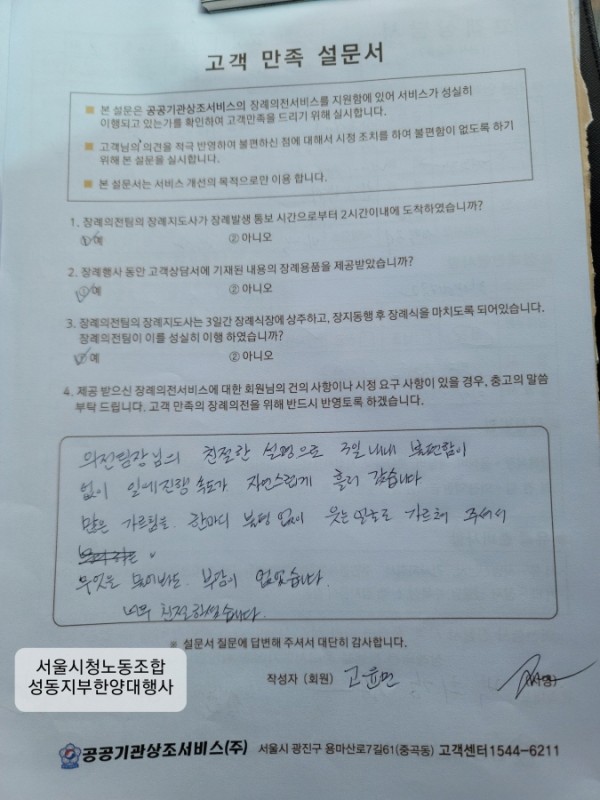 고객 만족 설문서
■ 본 설문은 공공기관상조서비스의 장례의전서비스를 지원함에 있어 서비스가 성실히
이행되고 있는가를 확인하여 고객만족을 드리기 위해 실시합니다.
■ 고객님의 의견을 적극 반영하여 불편하신 점에 대해서 시정 조치를 하여 불편함이 없도록 하기
위해 본 설문을 실시합니다.
■ 본 설문서는 서비스 개선의 목적으로만 이용 합니다.
1. 장례의전팀의 장례지도사가 장례발생 통보 시간으로부터 2시간이내에 도착하였습니까?
① 예 ② 아니오
2. 장례행사 동안 고객상담서에 기재된 내용의 장례용품을 제공받았습니까?
① 예 ② 아니오
3. 장례의전팀의 장례지도사는 3일간 장례식장에 상주하고, 장지동행 후 장례식을 마치도록 되어있습니다.
장례의전팀이 이를 성실히 이행 하였습니까?
① 예 ② 아니오
4. 제공 받으신 장례의전서비스에 대한 회원님의 건의 사항이나 시정 요구 사항이 있을 경우, 충고의 말씀
부탁 드립니다. 고객 만족의 장례의전을 위해 반드시 반영토록 하겠습니다.
의전팀장님의 친절한 설명으로 3일 내내 불편함이
없이 일에진행 속도가 자연스럽게 흘러 갔습니다
많은 가르침을 한마디 불평 없이 웃는 얼굴로 가르쳐 주셔서
무엇을 물어봐도 부담이 없었습니다.
너무 친절하셨습니다.
※ 설문서 질문에 답변해 주셔서 대단히 감사합니다.
작성자 (회원) 고윤민 (서명)
서울시청노동조합
성동지부한양대행사
공공기관상조서비스(주) 서울시 광진구 용마산로7길61(중곡동) 고객센터1544-6211